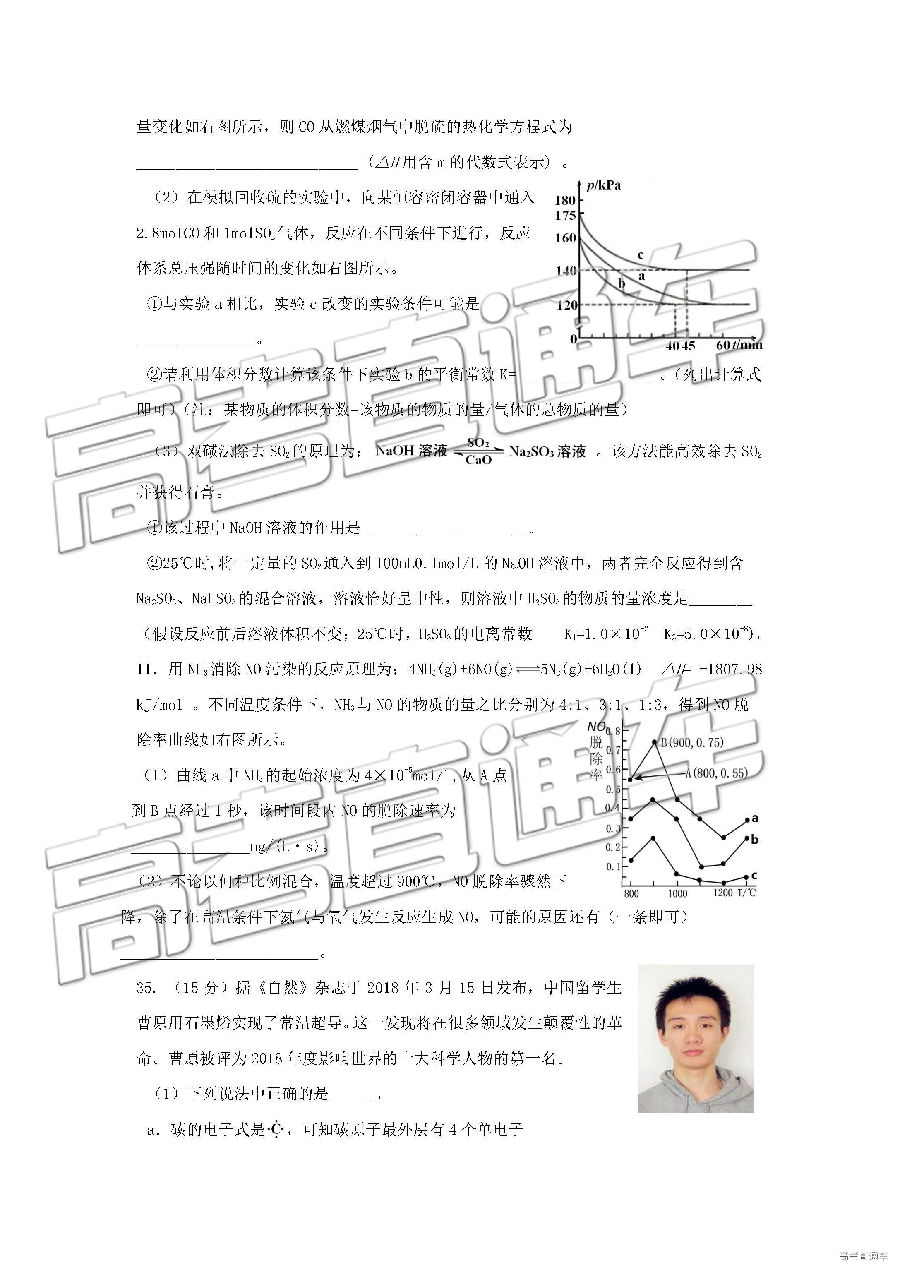 量变化如右图所示，则CO从燃煤烟气中脱硫的热化学方程式为
____________________________（△H用含m的代数式表示）。
（2）在模拟回收硫的实验中，向某恒容密闭容器中通入
2.8molCO和1molSO₂气体，反应在不同条件下进行，反应
体系总压强随时间的变化如右图所示。
p/kPa
180
175
160
140
120
0
c
a
b
40 45 60 t/min
①与实验a相比，实验c改变的实验条件可能是
_______________。
②请利用体积分数计算该条件下实验b的平衡常数K= 。（列出计算式
即可）（注：某物质的体积分数=该物质的物质的量/气体的总物质的量）
（3）双碱法除去SO₂的原理为：NaOH 溶液 SO₂ CaO Na₂SO₃ 溶液 。该方法能高效除去SO₂
并获得石膏。
①该过程中NaOH溶液的作用是 。
②25℃时，将一定量的SO₂通入到100mL0.1mol/L的NaOH溶液中，两者完全反应得到含
Na₂SO₃、NaHSO₃的混合溶液，溶液恰好呈中性，则溶液中H₂SO₃的物质的量浓度是________
（假设反应前后溶液体积不变；25℃时，H₂SO₃的电离常数
11．用NH₃消除NO污染的反应原理为：4NH₃(g)+6NO(g)⇌5N₂(g)+6H₂O(l) △H= -1807.98
kJ/mol 。不同温度条件下，NH₃与NO的物质的量之比分别为4:1、3:1、1:3，得到NO脱
除率曲线如右图所示。
NO脱除率
0.8
0.7
0.6
0.5
0.4
0.3
0.2
0.1
B(900,0.75)
A(800,0.55)
a
b
c
800 1000 1200 T/℃
（1）曲线a中NH₃的起始浓度为 从A点
到B点经过1秒，该时间段内NO的脱除速率为
_______________mg/(L·s)。
（2）不论以何种比例混合，温度超过900℃，NO脱除率骤然下
降，除了在高温条件下氮气与氧气发生反应生成NO，可能的原因还有（一条即可）
_________________________。
35. （15分）据《自然》杂志于2018年3月15日发布，中国留学生
曹原用石墨烯实现了常温超导。这一发现将在很多领域发生颠覆性的革
命。曹原被评为2018年度影响世界的十大科学人物的第一名。
（1）下列说法中正确的是______．
a．碳的电子式是·C·，可知碳原子最外层有4个单电子
高考直通车
高考直通车
高考直通车